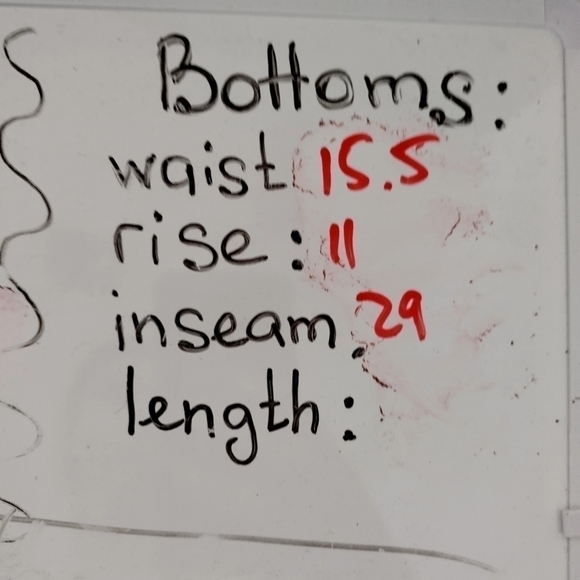 Bottoms:
waist 15.5
rise: 11
inseam. 29
length: